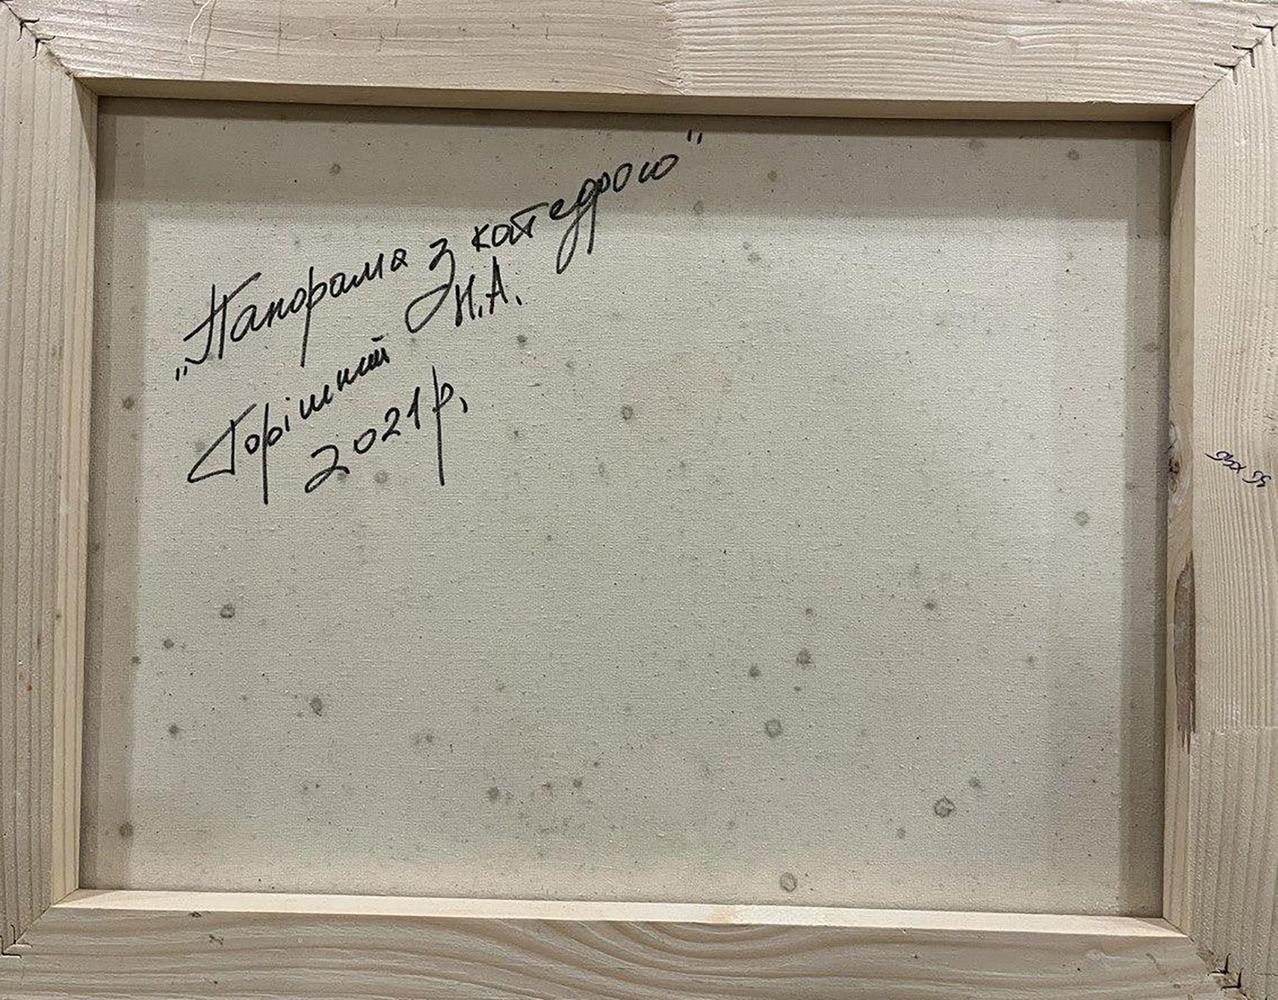 „Панорама з катедрою"
Горішний Н.А.
2021р.